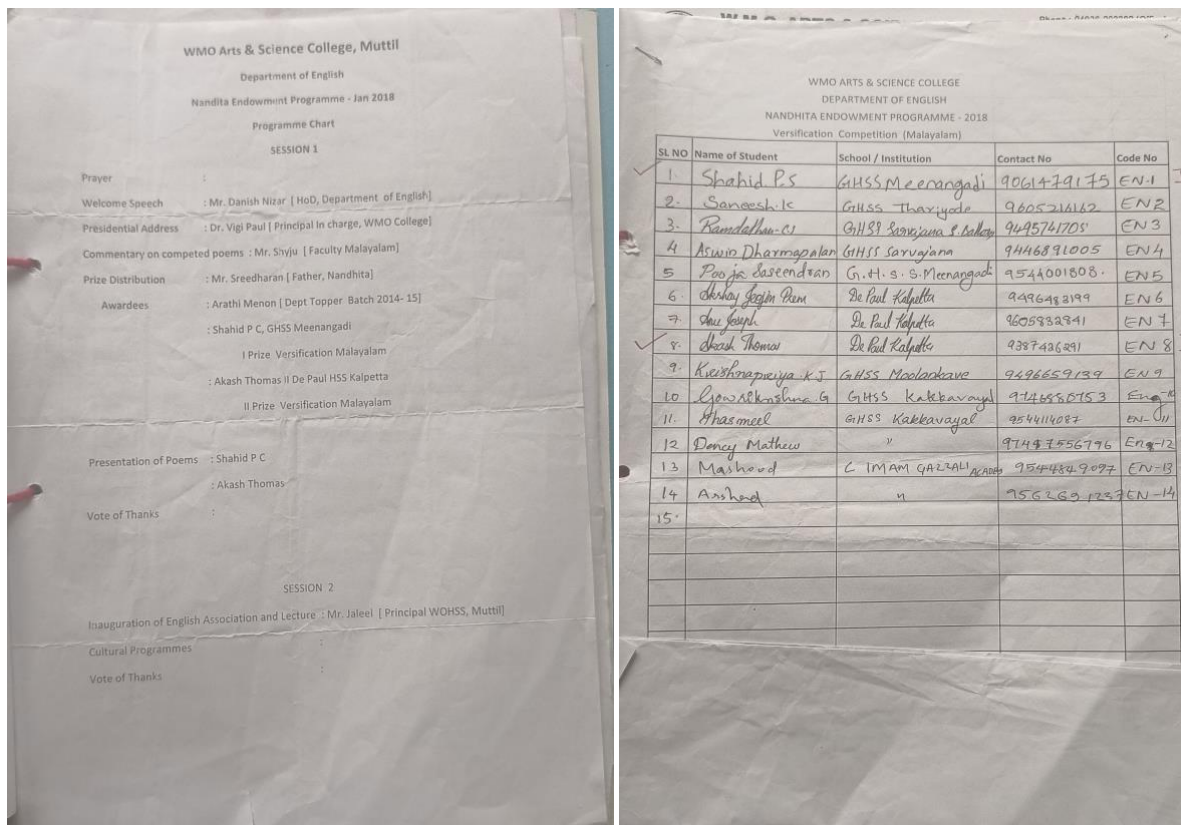 WMO Arts & Science College, Muttil
Department of English
Nandita Endowment Programme - Jan 2018
Programme Chart
SESSION 1
Prayer :
Welcome Speech : Mr. Danish Nizar [ HoD, Department of English]
Presidential Address : Dr. Vigi Paul [ Principal In charge, WMO College]
Commentary on competed poems : Mr. Shyju [ Faculty Malayalam]
Prize Distribution : Mr. Sreedharan [ Father, Nandhita]
Awardees : Arathi Menon [ Dept Topper Batch 2014- 15]
: Shahid P C, GHSS Meenangadi
I Prize Versification Malayalam
: Akash Thomas II De Paul HSS Kalpetta
II Prize Versification Malayalam
Presentation of Poems : Shahid P C
: Akash Thomas
Vote of Thanks :
SESSION 2
Inauguration of English Association and Lecture : Mr. Jaleel [ Principal WOHSS, Muttil]
Cultural Programmes :
Vote of Thanks :
WMO ARTS & SCIENCE COLLEGE
DEPARTMENT OF ENGLISH
NANDHITA ENDOWMENT PROGRAMME - 2018
Versification Competition (Malayalam)
SL NO Name of Student School / Institution Contact No Code No
1. Shahid P.S GHSS Meenangadi 9061479175 EN.1
2. Saneesh.K GHSS Thariyode 9605216162 EN 2
3. GHSS Sarvajana S. Bathery 9495741705 EN 3
4 Aswin Dharmapalan GHSS Sarvajana 9446891005 EN 4
5 Pooja Saseendran G.H.S.S.Meenangadi 9544001808. EN 5
6. Akshay Jogin Prem De Paul Kalpetta 9496483199 EN 6
7. Anu Joseph De Paul Kalpetta 9605832841 EN 7
8. Akash Thomas De Paul Kalpetta 9387436291 EN 8
9. Krishnapriya K J GHSS Moolankave 9496659139 EN 9
10 Gowrikrishna G GHSS Kakkavayal 9746880753 Eng-10
11. Thasmeel GHSS Kakkavayal 9544114087 EN-11
12 Dency Mathew " Eng-12
13 Mashood C IMAM GAZZALI ACADEM 9544849097 EN-13
14 Arshad " EN-14
15.